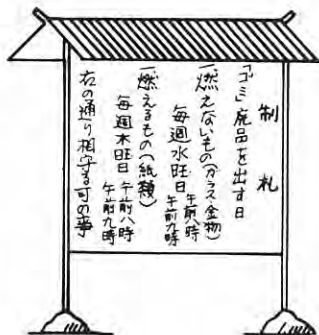 制札
「ゴミ」廃品を出す日
一燃えないもの(ガラス・金物)
毎週水旺日 午前八時
午前九時
一燃えるもの(紙類)
毎週木旺日 午前八時
午前九時
右の通り相守る可の事